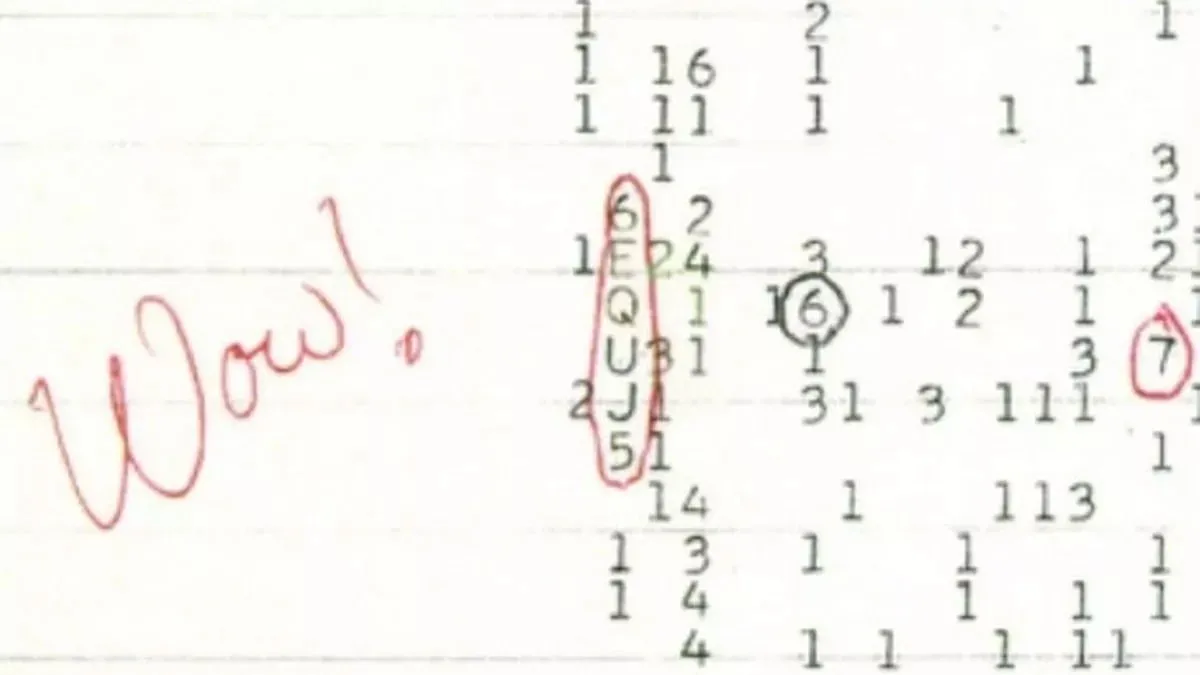 1 2 1
1 16 1 1
1 11 1 1
1 3
6 2 3
1E24 3 12 1 2
Q 1 16 1 2 1
U31 1 3 7
2J1 31 3 111
51 1
14 1 113
1 3 1 1 1
1 4 1 1 1
4 1 1 1 11
Wow!